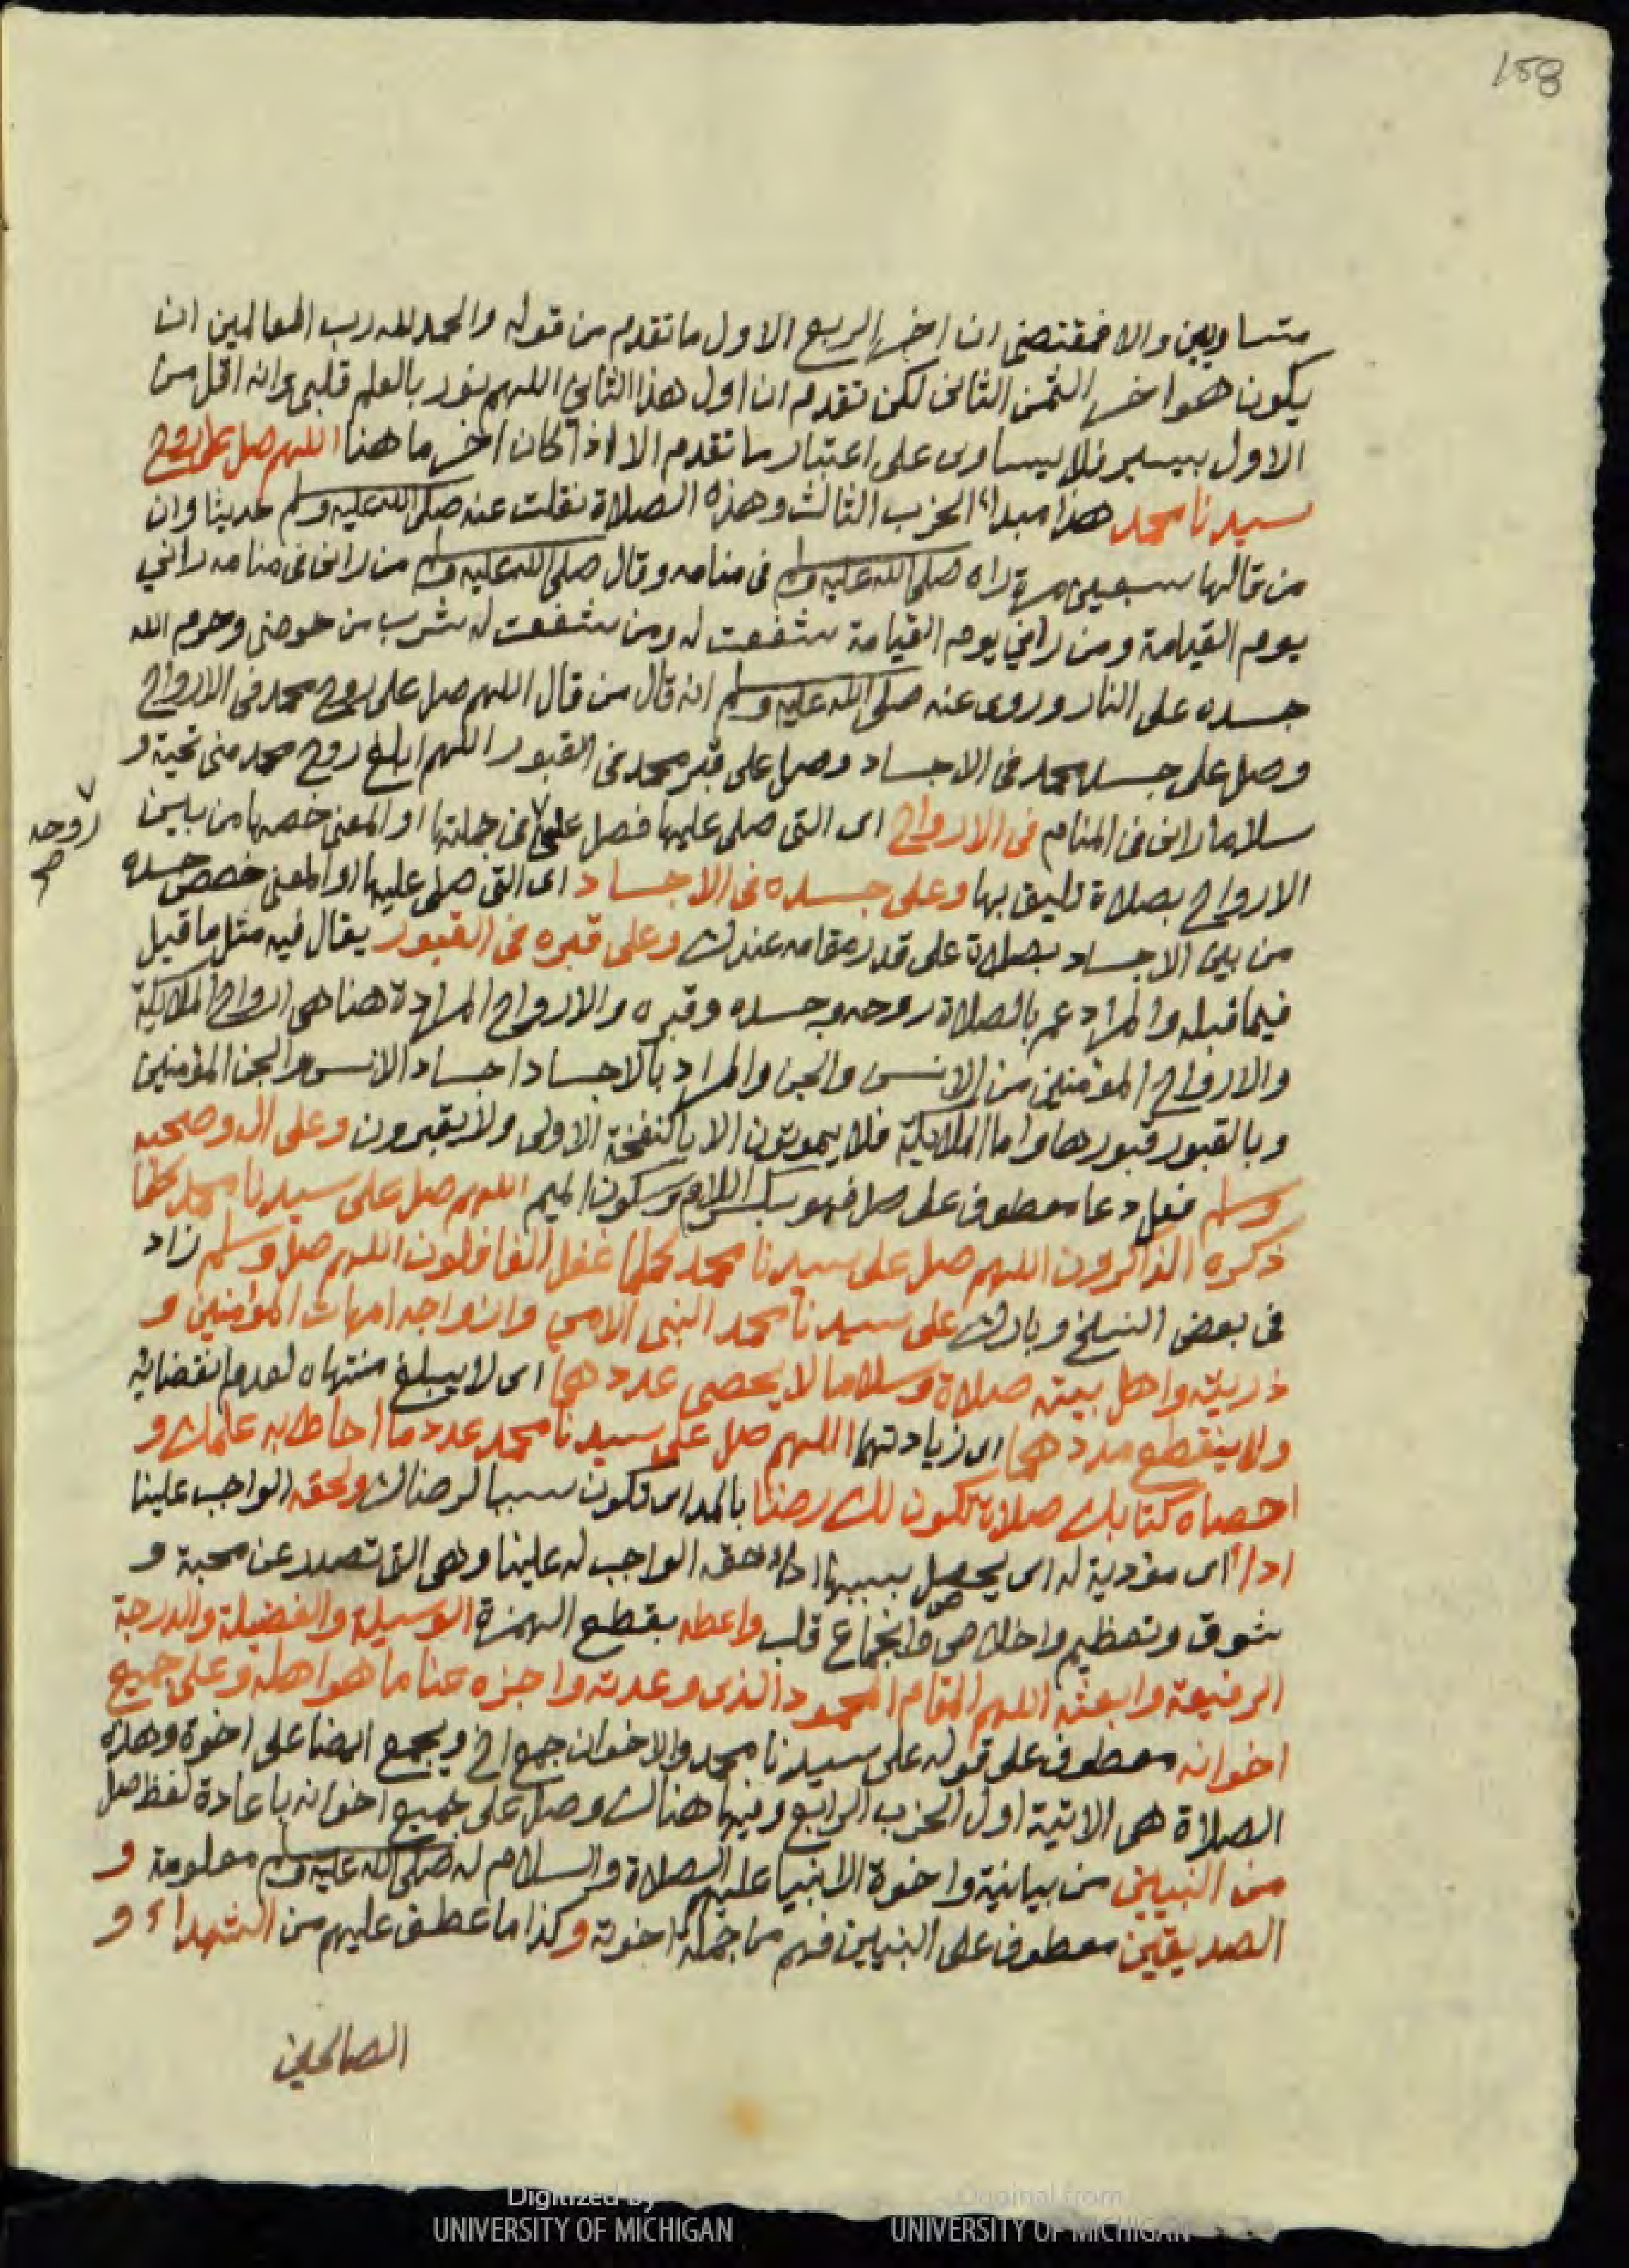 158
متساويين والا فمقتضى ان اخر الربع الاول ما تقدم من قوله والحمد لله رب العالمين ان
يكون هو اخر الثمن الثانى لكن تقدم ان اول هذا الثانى اللهم نور بالعلم قلبى وانه اقل من
الاول بيسير فلا يساوى على اعتبار ما تقدم الا اذا كان اخر ما هنا اللهم صل على روح
سيدنا محمد هذا مبدا الحزب الثالث وهذه الصلاة نقلت عنه صلى الله عليه وسلم حديثا وان
من قالها سبعين مرة راه صلى الله عليه وسلم فى منامه وقال صلى الله عليه وسلم من رانى فى منامه رانى
يوم القيامة ومن رانى يوم القيامة شفعت له ومن شفعت له شرب من حوضى وحرم الله
جسده على النار وروى عنه صلى الله عليه وسلم انه قال من قال اللهم صل على روح محمد فى الارواح
وصل على جسد محمد فى الاجساد وصل على قبر محمد فى القبور اللهم ابلغ روح محمد منى تحية و
سلاما رانى فى المنام فى الارواح اى التى صلى عليها فصل على فى جملتها او المعنى خصها من بين
روحه
صح
الارواح بصلاة تليق بها وعلى جسده فى الاجساد اى التى صلى عليها او المعنى خصص جسده
من بين الاجساد بصلاة على قدر مقامه عندك وعلى قبره فى القبور يقال فيه مثل ما قيل
فيما قبله والمراد عم بالصلاة روحه وجسده وقبره والارواح المرادة هنا هى ارواح الملايكة
والارواح المؤمنين من الانس والجن والمراد بالاجساد اجساد الانس والجن المؤمنين
وبالقبور قبورها واما الملايكة فلا يموتون الا بالنفخة الاولى ولا يقبرون وعلى اله وصحبه
وسلم فعل دعا معطوف على صل فهو بكسر اللام وسكون الميم اللهم صل على سيدنا محمد كلما
ذكره الذاكرون اللهم صل على سيدنا محمد كلما غفل الغافلون اللهم صل وسلم زاد
فى بعض النسخ وبارك على سيدنا محمد النبى الامى وازواجه امهات المؤمنين و
ذريته واهل بيته صلاة وسلاما لا يحصى عددهما اى لا يبلغ منتهاه لعدم انقضائه
ولا ينقطع مددهما اى زيادتهما اللهم صل على سيدنا محمد عدد ما احاط به علمك و
احصاه كتابك صلاة تكون لك رضا بالمد اى تكون سببا لرضاك ولحقه الواجب علينا
اداء اى مؤدية له اى يحصل بسببها اداء حقه الواجب له علينا وهى التى تصدر عن محبة و
شوق وتعظيم واخلاص وانجماع قلب واعطه بقطع الهمزة الوسيلة والفضيلة والدرجة
الرفيعة وابعثه اللهم المقام المحمود الذى وعدته واجزه عنا ما هو اهله وعلى جميع
اخوانه معطوف على قوله على سيدنا محمد والاخوان جمع اخ ويجمع ايضا على اخوة وهذه
الصلاة هى الاتية اول الحزب الرابع وفيها هنالك وصل على جميع اخوانه باعادة لفظ صل
من النبيين من بيانية واخوة الانبيا عليهم الصلاة والسلام له صلى الله عليه وسلم معلومة و
الصديقين معطوف على النبيين فهم من جملة اخوته وكذا ما عطف عليهم من الشهداء و
الصالحين
Digitized by
UNIVERSITY OF MICHIGAN
Original from
UNIVERSITY OF MICHIGAN